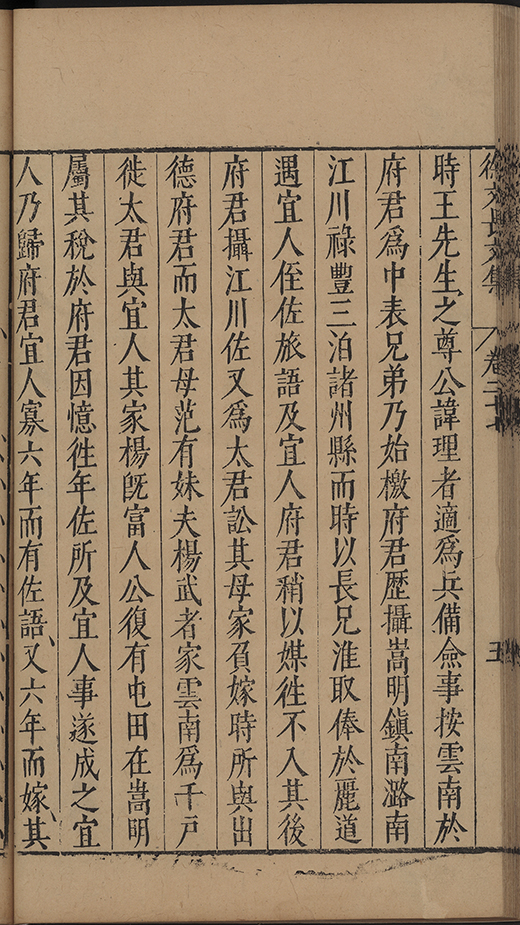 徐文長文集 卷二十七 五
時王先生之尊公諱理者適爲兵備僉事按雲南於
府君爲中表兄弟乃始檄府君歷攝嵩明鎮南潞南
江川祿豐三泊諸州縣而時以長兄淮取俸於麗道
遇宜人侄佐旅語及宜人府君稍以媒徃不入其後
府君攝江川佐又爲太君訟其母家負嫁時所與出
德府君而太君母范有妹夫楊武者家雲南爲千戶
徙太君與宜人其家楊旣富人公復有屯田在嵩明
屬其稅於府君因憶徃年佐所及宜人事遂成之宜
人乃歸府君宜人寡六年而有佐語又六年而嫁其